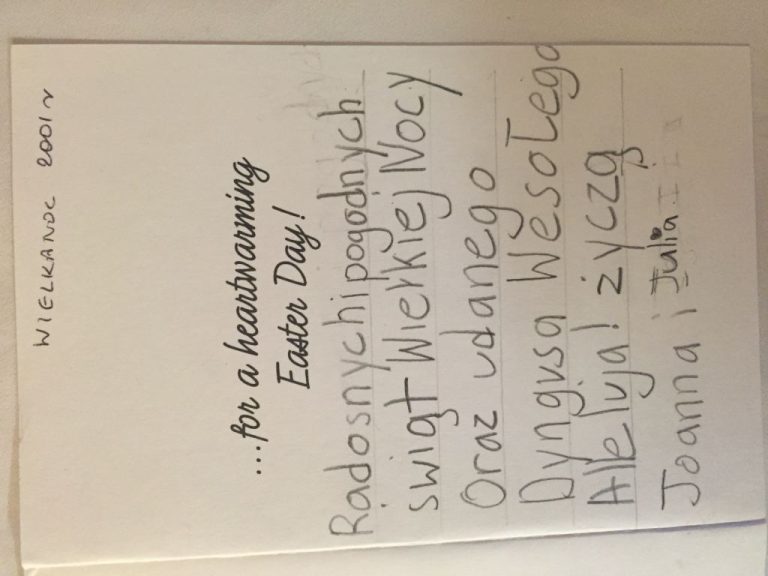 WIELKANOC 2001 r
...for a heartwarming
Easter Day!
Radosnych i pogodnych
swiąt Wielkiej Nocy
Oraz udanego
Dyngusa Wesołego
Alleluja! życzą
Joanna i Julia